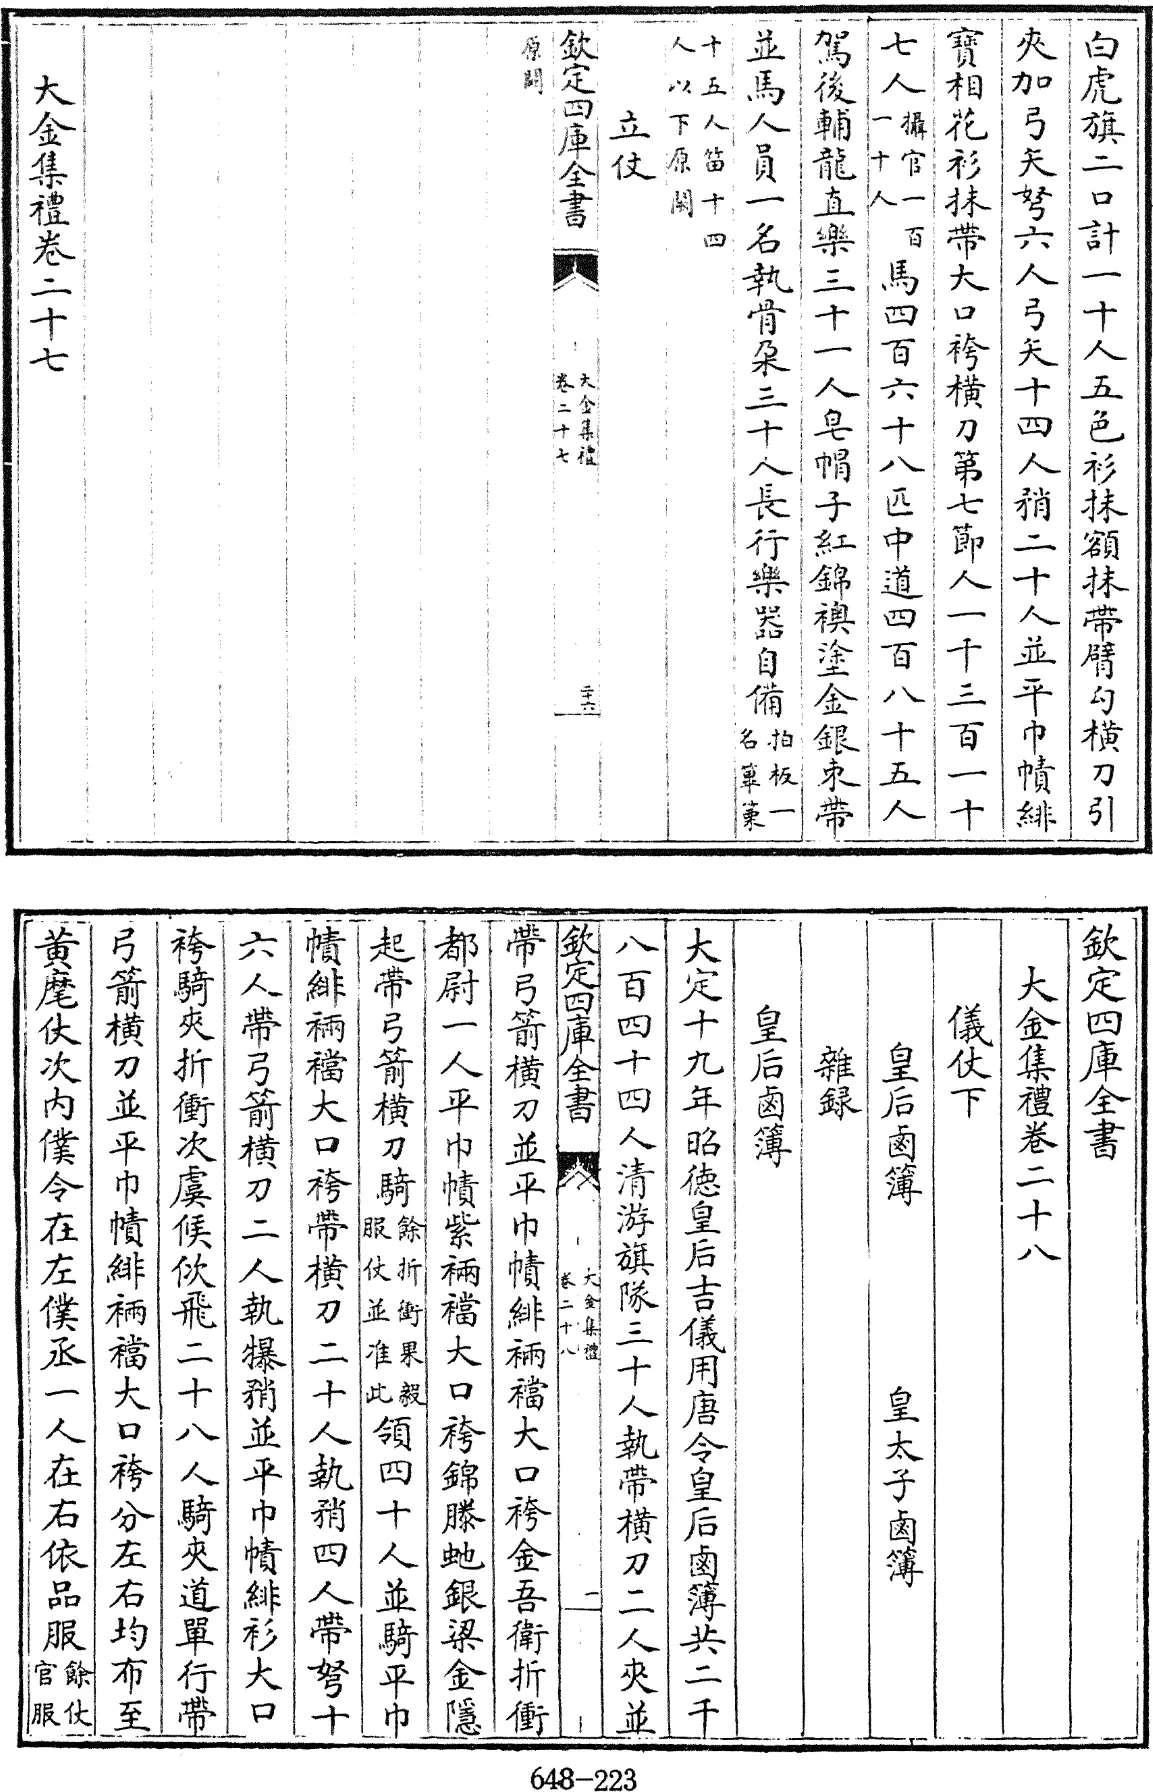 白虎旗二口計一十人五色衫抹額抹帶臂勾横刀引
夾加弓矢弩六人弓矢十四人矟二十人並平巾幘緋
寶相花衫抹帶大口袴横刀第七節人一千三百一十
七人攝官一百一十人馬四百六十八匹中道四百八十五人
駕後輔龍直樂三十一人皂帽子紅錦襖塗金銀束帶
並馬人員一名執骨朶三十人長行樂器自備拍板一名篳篥
十五人笛十四人以下原闕
立仗
欽定四庫全書
大金集禮
卷二十七
二十六
原闕
大金集禮卷二十七
欽定四庫全書
大金集禮卷二十八
儀仗下
皇后鹵簿 皇太子鹵簿
雜録
皇后鹵簿
大定十九年昭德皇后吉儀用唐令皇后鹵簿共二千
八百四十四人清游旗隊三十人執帶横刀二人夾並
欽定四庫全書
大金集禮
卷二十八
一
帶弓箭横刀並平巾幘緋裲襠大口袴金吾衛折衝
都尉一人平巾幘紫裲襠大口袴錦螣虵銀梁金隱
起帶弓箭横刀騎餘折衝果毅服仗並准此領四十人並騎平巾
幘緋裲襠大口袴帶横刀二十人執矟四人帶弩十
六人帶弓箭横刀二人執㩧矟並平巾幘緋衫大口
袴騎夾折衝次虞候佽飛二十八人騎夾道單行帶
弓箭横刀並平巾幘緋裲襠大口袴分左右均布至
黄麾仗次内僕令在左僕丞一人在右依品服餘仗官服
648-223